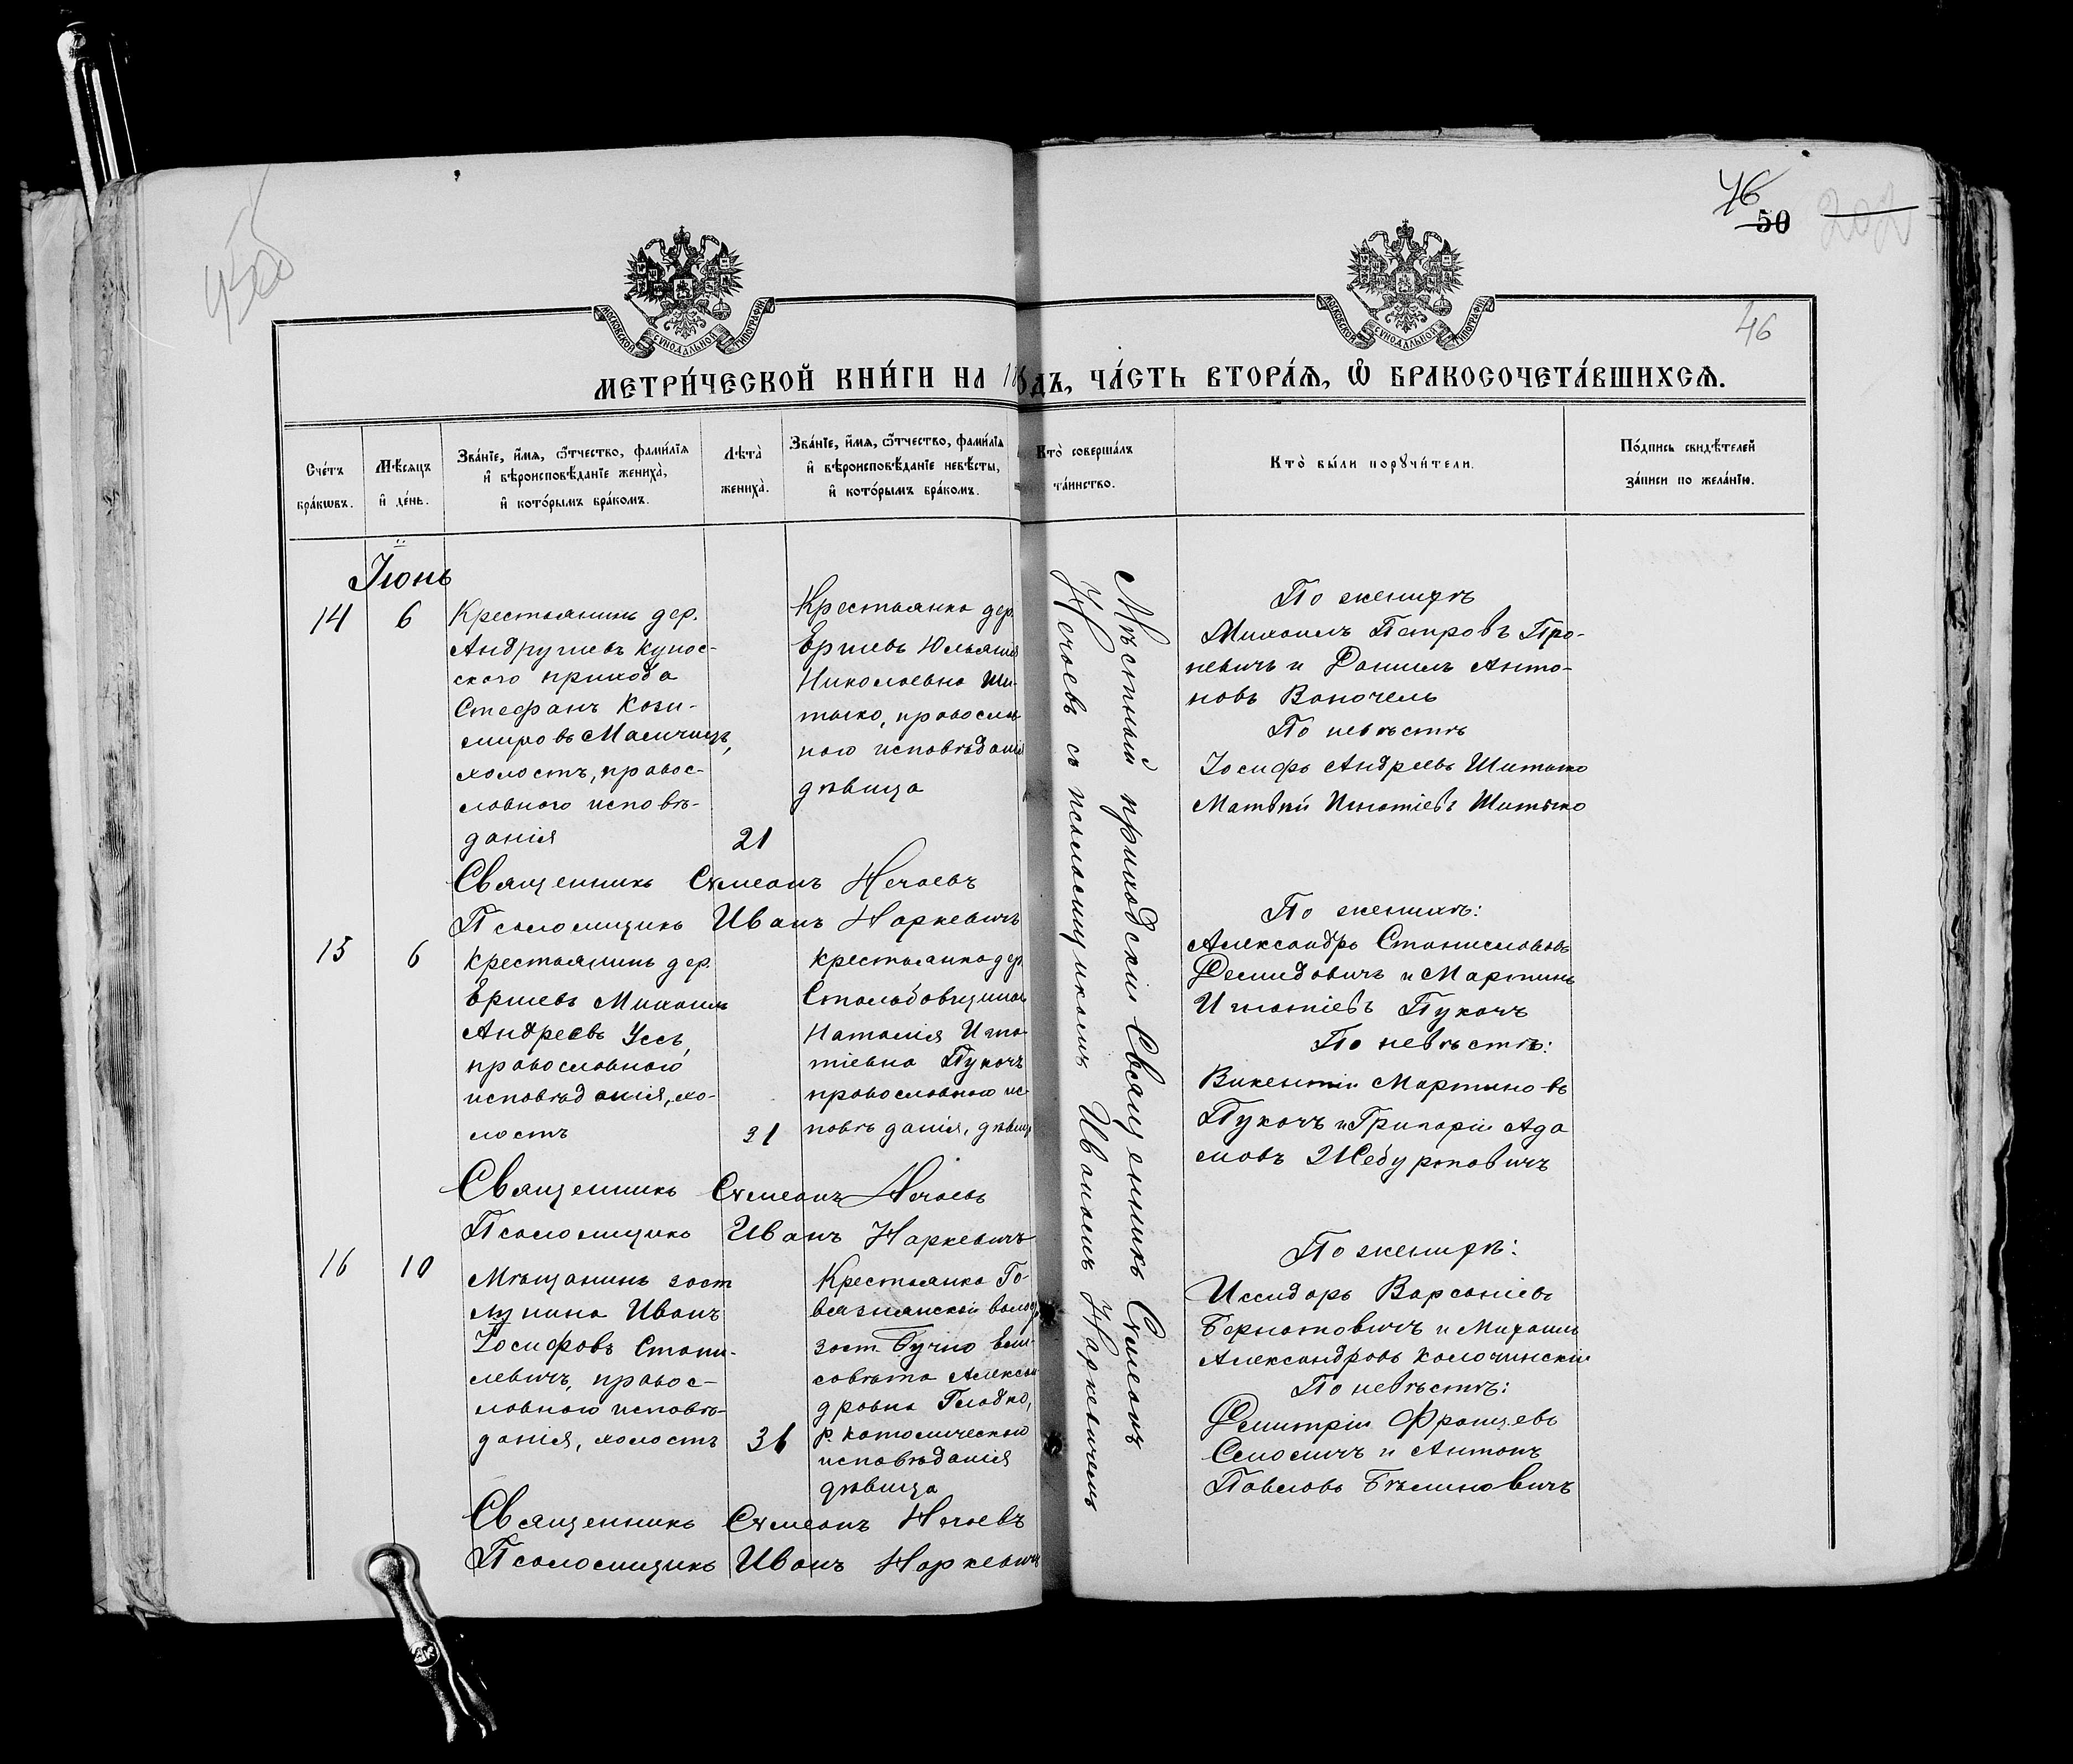 46
50
202
46
МОСКОВСКОЙ СУНОДАЛЬНОЙ ТИПОГРАФІИ
МОСКОВСКОЙ СУНОДАЛЬНОЙ ТИПОГРАФІИ
МЕТРИ́ЧЕСКОЙ КНИ́ГИ НА
ДЪ, ЧА́СТЬ ВТОРА́Ѧ, Ѽ БРАКОСОЧЕТА́ВШИХСѦ.
Сче́тъ бра́кѡвъ.
Мѣ́сяцъ и҆ де́нь.
Зва́нїе, и҆́мѧ, ѻ҆́тчество, фами́лїѧ
и҆ вѣроисповѣ́данїе жениха̀,
и҆ кото́рымъ бра́комъ.
Лѣта̀ жениха̀.
Зва́нїе, и҆́мѧ, ѻ҆́тчество, фами́лїѧ
и҆ вѣроисповѣ́данїе невѣ́сты,
и҆ кото́рымъ бра́комъ.
Кто̀ соверша́лъ
та́инство.
Кто̀ бы́ли порꙋчи́тели.
По́дпись свидѣ́телей
за́писи по жела́нїю.
Іюнь
14
6
Крестьянинъ дер.
Андрушевъ Кунос-
ского прихода
Стефанъ Кози-
мировъ
холостъ, правос-
лавного исповѣ-
данія
21
Крестьянка дер.
Ершевъ Юльянія
Николаевна Ши-
тыко, православ-
ного исповѣданія
дѣвица
Мѣстный приходскій Священникъ Сѵмеонъ
Нечаевъ съ псаломщикомъ Иваномъ Наркевичемъ
По женихѣ
Михаилъ Петровъ Про-
невичъ и Даніилъ Анто-
новъ Вапочель
По невѣстѣ
Іосифъ Андреевъ Шитыко
Матвѣй Игнатіевъ Шитыко
Священникъ Сѵмеонъ Нечаевъ
Псаломщикъ Иванъ Наркевичъ
15
6
Крестьянинъ дер.
Ершевъ Михаилъ
Андреевъ Уссъ,
православного
исповѣданія, хо-
лостъ
31
Крестьянка дер.
Наталія Игна-
тіевна Пукачъ
православного ис-
повѣданія, дѣвица
По женихѣ:
Александръ Станиславовъ
Демидовичъ и Мартинъ
Игнатіевъ Пукачъ
По невѣстѣ:
Викентій Мартино-въ
Пукачъ и Григорій Ада
мовъ Жебуртовичъ
Священникъ Сѵмеонъ Нечаевъ
Псаломщикъ Иванъ Наркевичъ
16
10
Мѣщанинъ заст
Лупина Иванъ
Іосифовъ Стани-
левичъ, правос-
лавного исповѣ-
данія, холостъ
31
Крестьянка Го-
вязнянской волос.
заст. Бучно Ели-
совѣта Алексан-
дровна Гладко,
р. католического
исповѣданія
дѣвица
По женихѣ:
Исидоръ Варсаніевъ
Бернатовичъ и Михаилъ
Александровъ Колочинскій
По невѣстѣ:
Димитрій Францевъ
Самосичъ и Антонъ
Павловъ Бѣлиновичъ
Священникъ Сѵмеонъ Нечаевъ
Псаломщикъ Иванъ Наркевичъ